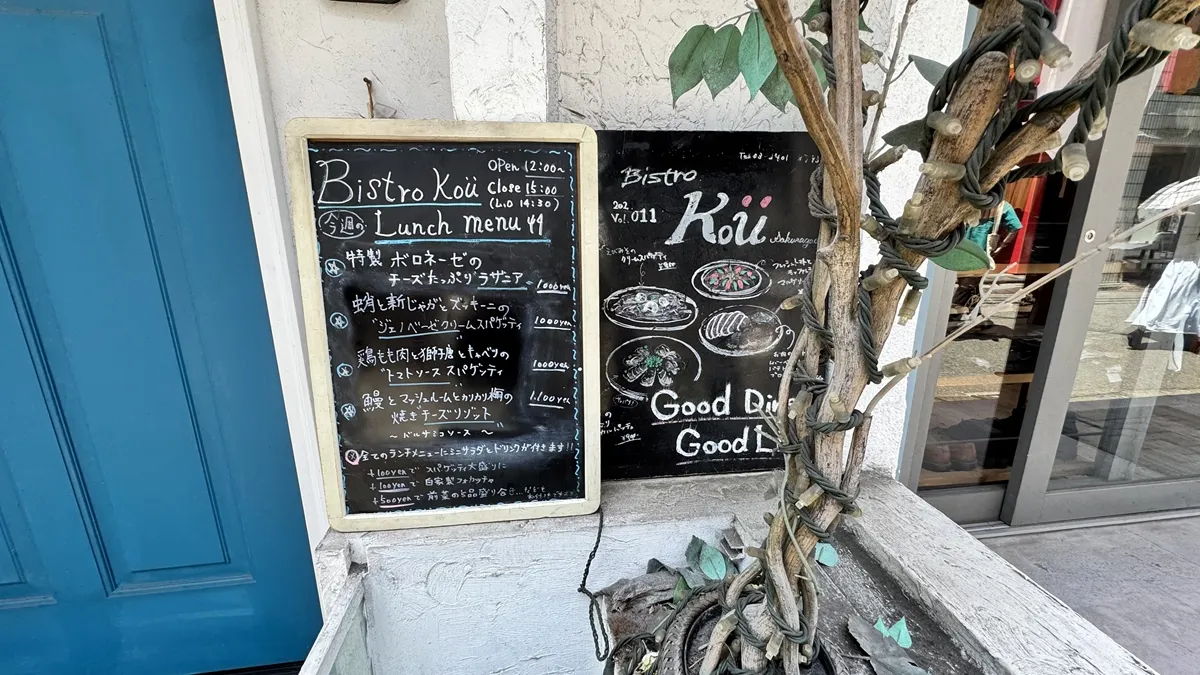 Bistro Koü
Open 12:00~
Close 15:00
(L.O 14:30)
今週の Lunch menu
特製 ボロネーゼの
チーズたっぷり ラザニア 1000yen
蛸と新じゃがとズッキーニの
ジェノベーゼクリームスパゲッティ 1000yen
鶏もも肉と獅子唐とキャベツの
トマトソース スパゲッティ 1000yen
鰻とマッシュルームとカリカリ梅の
焼きチーズリゾット 1.100yen
~バルサミコソース~
全てのランチメニューにミニサラダとドリンクが付きます!!
+100yenで スパゲッティ大盛りに
+100yenで 自家製フォカッチャ
+500yenで 前菜の5品盛り合せ...
Bistro
Koü
Vol.011
クリームスパゲティ
Good
Good